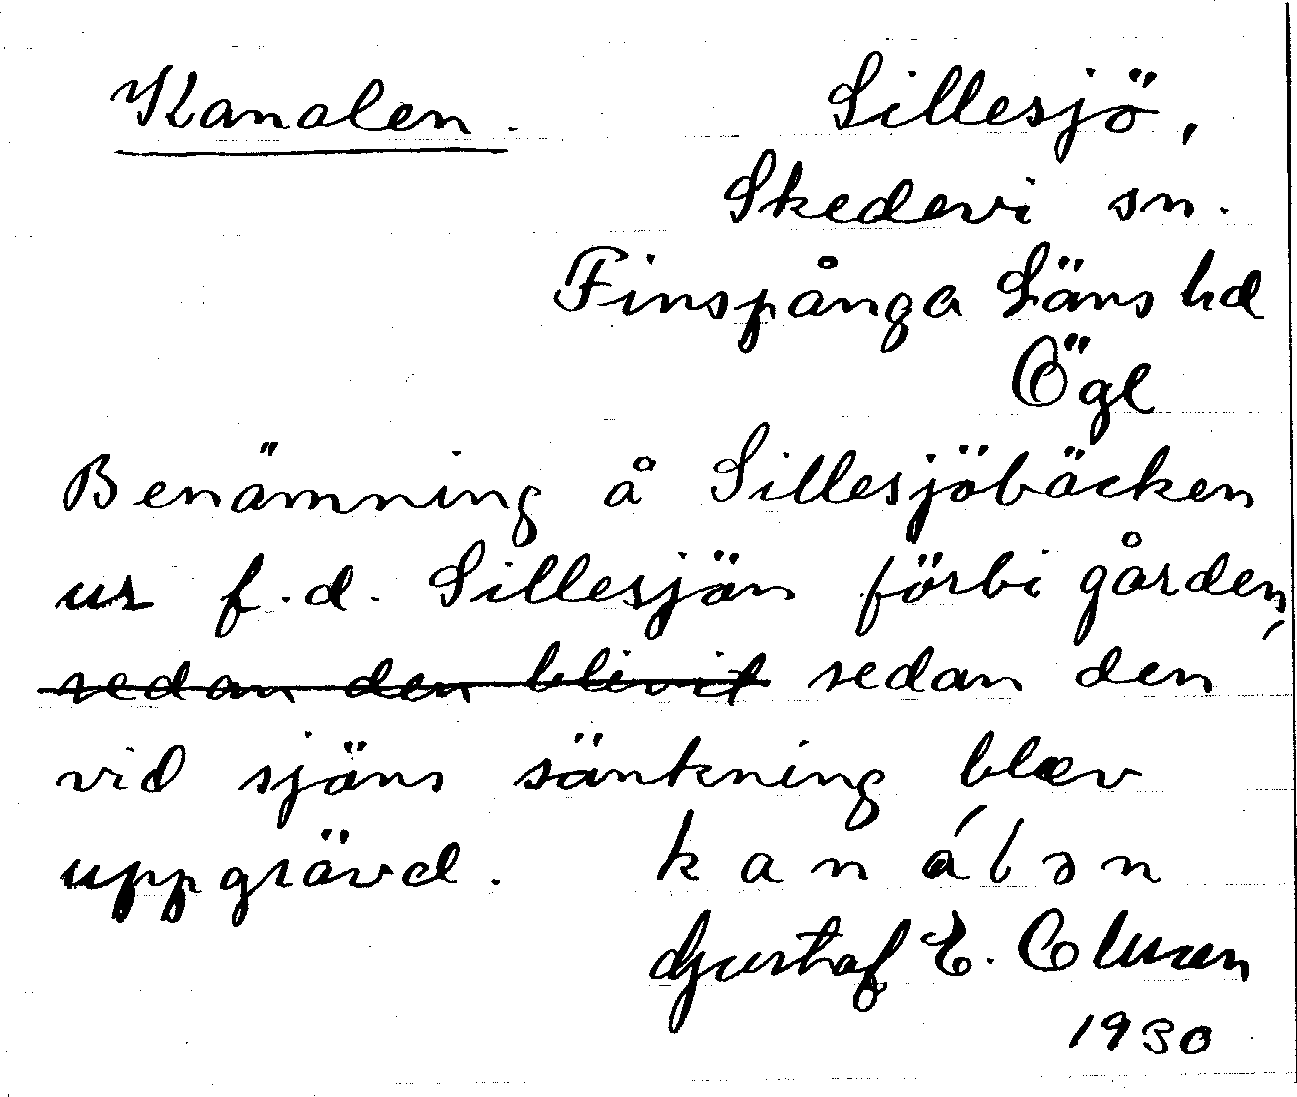 Kanalen. Sillesjö,
Skedevi sn.
Finspånga Läns hd
Ögl
Benämning å Sillesjöbäcken
ur f.d. Sillesjön förbi gården,
sedan den blivit sedan den
vid sjöns sänkning blev
uppgrävd. kanálən
Gustaf E. Olsson
1930